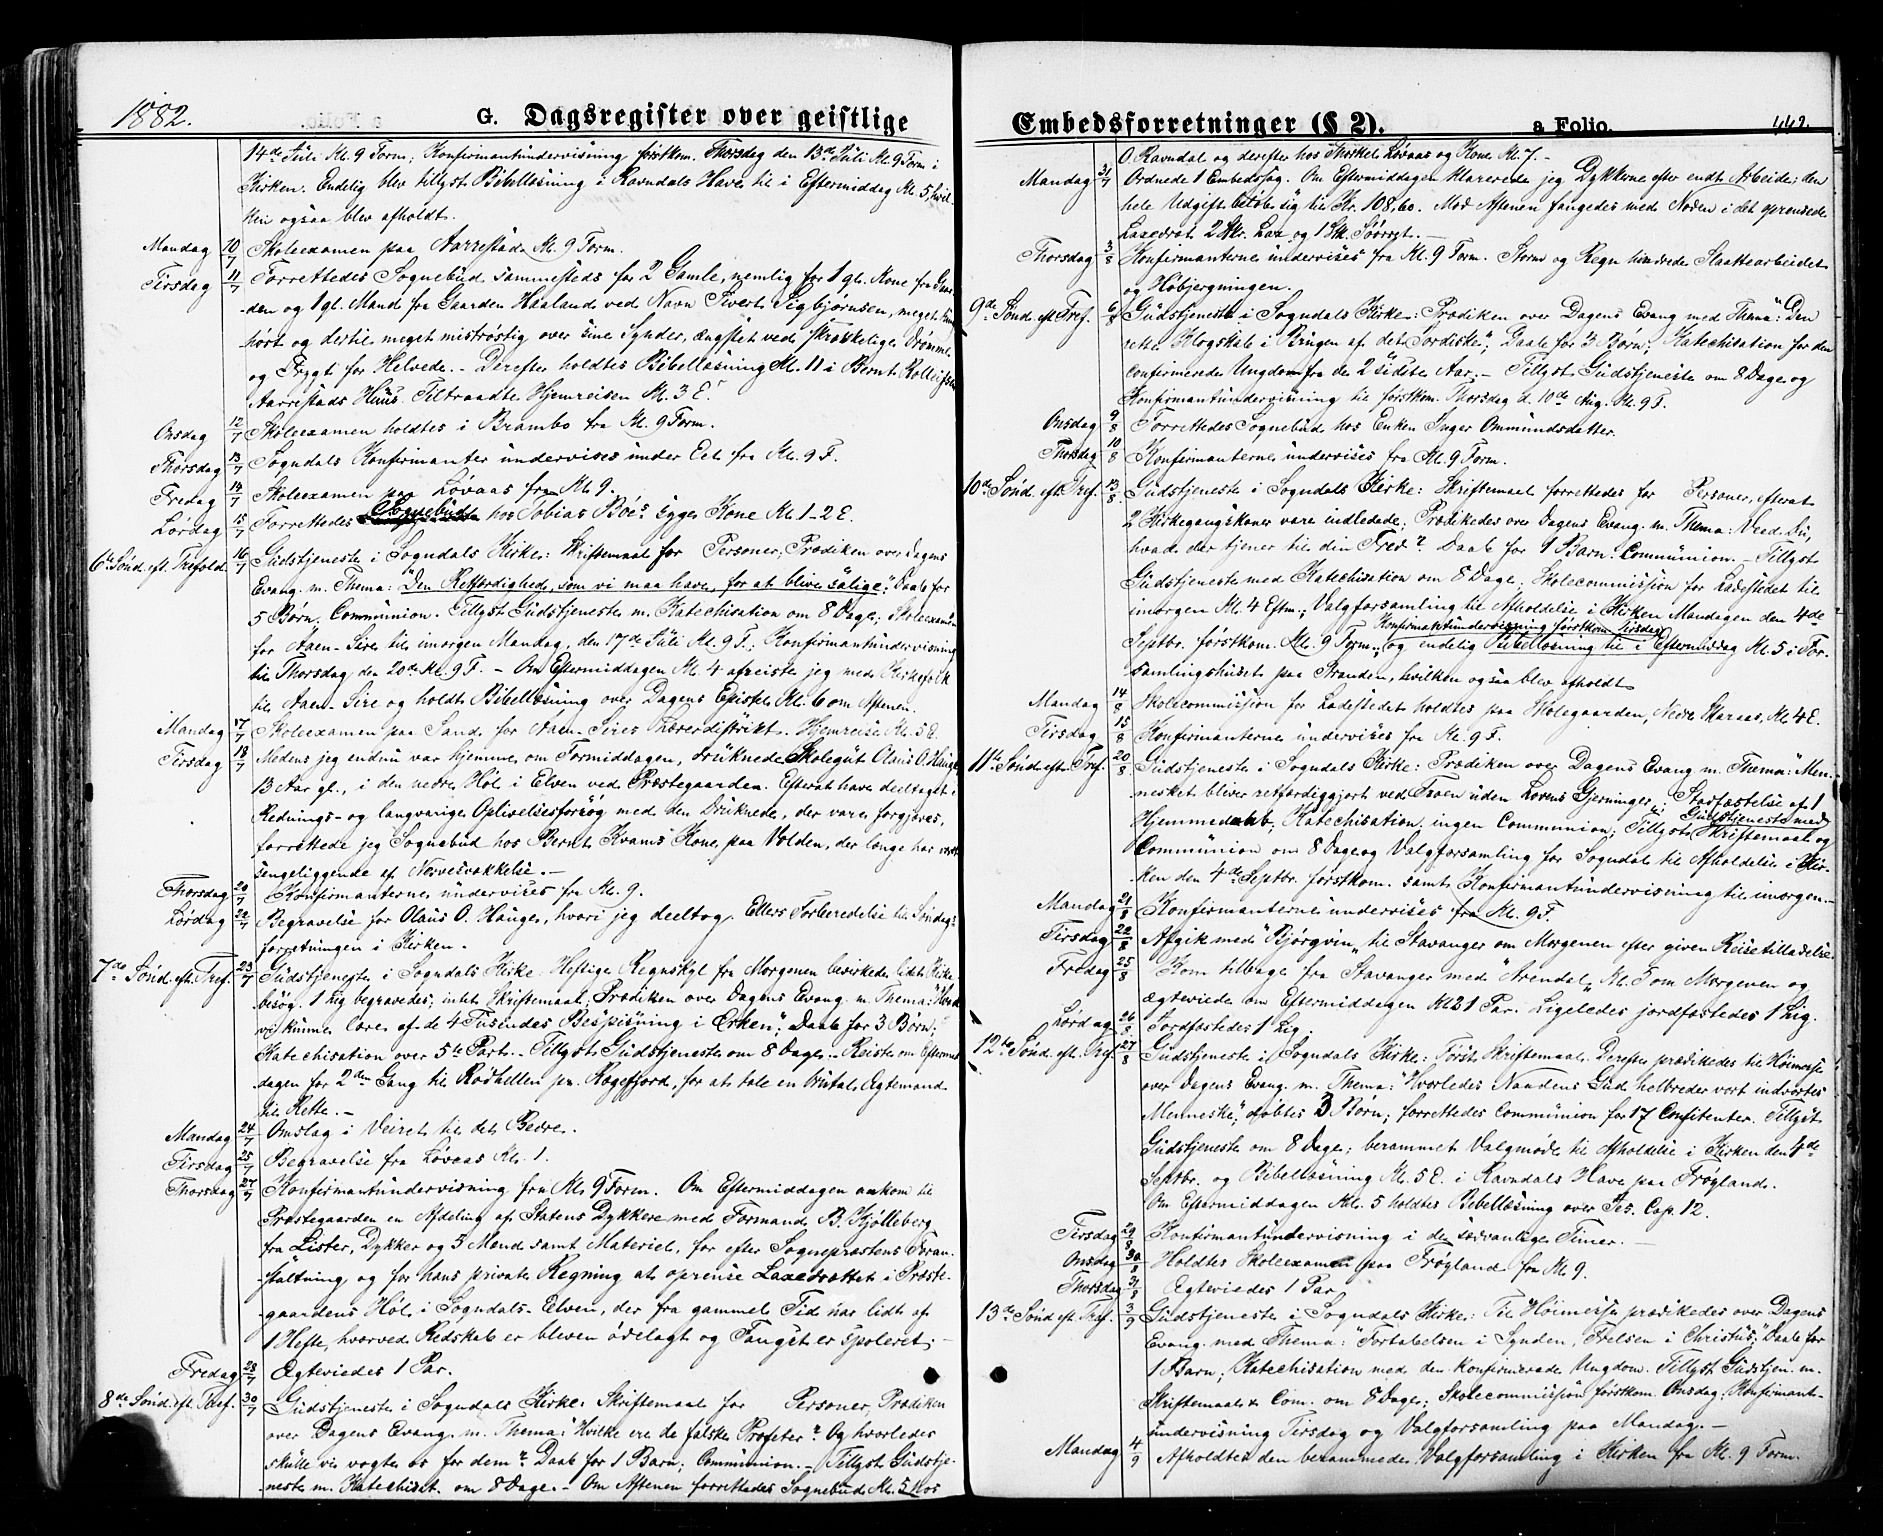 1882.
G. Dagsregister over geistlige
14de Juli Kl. 9 Form; Konfirmantundervisning førstkom. Thorsdag den 13de Juli Kl. 9 Form i
Kirken. Endelig blev tillyst Bibellæsning i Ravndals Have til i Eftermiddag Kl. 5, hvil-
ken ogsaa blev afholdt.
Mandag 10/7 Skoleexamen paa Aarrestad Kl. 9 Form.
Tirsdag 11/7 Forrettedes Sognebud sammesteds for 2 Gamle, nemlig for 1 gl. Kone fra Gaar-
den og 1 gl. Mand fra Gaarden Haaland ved Navn Sivert Sigbjørnsen, meget
hørt og dertil meget mistrøstig over sine Synder, ængstet ved skrækkelige Drømme
og Frygt for Helvede. - Derefter holdtes Bibellæsning Kl. 11 i Bernt
Aarrestads Huus. Tiltraadte Hjemreisen Kl. 3 E.
Onsdag 12/7 Skoleexamen holdtes i Brambo fra Kl. 9 Form.
Thorsdag 13/7 Sogndals Konfirmanter undervises under Eet fra Kl. 9 F.
Fredag 14/7 Skoleexamen paa Løvaas fra Kl. 9.
Lørdag 15/7 Forrettedes Sognebud hos Tobias Bøe's Egges Kone Kl. 1-2 E.
6te Sønd. eft. Trefold. 16/7 Gudstjeneste i Sogndals Kirke: Skriftemaal for Personer, Prædiken over Dagens
Evang. m. Thema: "Den Retfærdighed, som vi maa have, for at blive salige". Daab for
5 Børn. Communion. Tillyst Gudstjeneste m. Katechisation om 8 Dage; Skoleexamen
for Aaen-Sire til imorgen Mandag, den 17de Juli Kl. 9 F.; Konfirmantundervisning
til Thorsdag den 20de Kl. 9 F. - Om Eftermiddagen Kl. 4 afreiste jeg med Kirkefolk
til Aaen-Sire og holdt Bibellæsning over Dagens Epistel Kl. 6 om Aftenen.
Mandag 17/7 Skoleexamen paa Sand for Aaen-Sires Skoledistrikt. Hjemreise Kl. 5 E.
Tirsdag 18/7 Medens jeg endnu var hjemme, om Formiddagen, druknede Skolegut Olaus O. Hauge,
13 Aar gl., i den nedre Høl i Elven ved Præstegaarden. Efterat have deeltaget i
Rednings- og langvarige Oplivelsesforsøg med den Druknede, der vare forgjæves,
forrettede jeg Sognebud hos Bernt Kvams Kone, paa Volden, der længe har været
sengeliggende af Nervesvækkelse. -
Thorsdag 20/7 Konfirmanterne undervises fra Kl. 9.
Lørdag 22/7 Begravelse for Olaus O. Hauge, hvori jeg deeltog. Ellers Forberedelse til Søndags-
forretningen i Kirken.
7de Sønd. eft. Tref. 23/7 Gudstjeneste i Sogndals Kirke: Heftige Regnskyl fra Morgenen bevirkede lidt Kirke-
besøg. 1 Lig begravedes; intet Skriftemaal; Prædiken over Dagens Evang. m. Thema: "Hvad
vi kunne lære af de 4 Tusindes Bespisning i Ørken"; Daab for 3 Børn;
Katechisation over 5te Part. - Tillyst Gudstjeneste om 8 Dage. - Reiste om Eftermid-
dagen for 2den Gang til Rødhellen pr. Rægefjord, for at tale en brutal Ægtemand
til Rette. -
Mandag 24/7 Omslag i Veiret til det Bedre.
Tirsdag 25/7 Begravelse fra Løvaas Kl. 1.
Thorsdag 27/7 Konfirmantundervisning fra Kl. 9 Form. Om Eftermiddagen ankom til
Præstegaarden en Afdeling af Statens Dykkere med Formand B. Kjølleberg
fra Lister, Dykker og 5 Mand samt Materiel, for efter Sognepræstens Foran-
staltning og for hans private Regning at oprense Laxedrættet i Præste-
gaardens Høl i Sogndals-Elven, der fra gammel Tid har lidt af
1 Hefte, hvorved Redskab er bleven ødelagt og Fangst er spoleret. -
Fredag 28/7 Ægteviedes 1 Par.
8de Sønd. eft. Tref. 30/7 Gudstjeneste i Sogndals Kirke: Skriftemaal for Personer, Prædiken
over Dagens Evang. m. Thema: Hvilke ere de falske Profeter? Og hvorledes
skulle vi vogte os for dem? Daab for 1 Barn; Communion. - Tillyst Gudstje-
neste m. Katechisat. om 8 Dage. - Om Aftenen forrettedes Sognebud Kl. 5 hos
Embedsforretninger (§ 2).
a Folio.
442.
O. Ravndal og derefter hos Thorkel Løvaas og Kone Kl. 7. -
Mandag 31/7 Ordnede 1 Embedssag. Om Eftermiddagen klarerede jeg Dykkerne efter endt Arbeide; den
hele Udgift beløb sig til Kr. 108,60. Mod Aftenen fangedes med Noden i det oprensede
Laxedræt 2 Stk. Lax og 1 Stk. Søørret. -
Thorsdag 3/8 Konfirmanterne undervises fra Kl. 9 Form. Storm og Regn hindrede Slaattearbeidet
og Høbjergningen.
9de Sønd. eft. Tref. 6/8 Gudstjeneste i Sogndals Kirke: Prædiken over Dagens Evang med Thema: "Den
rette Klogskab i Brugen af det Jordiske"; Daab for 3 Børn; Katechisation for den
confirmerede Ungdom fra de 2 sidste Aar. - Tillyst Gudstjeneste om 8 Dage og
Konfirmantundervisning til førstkom. Thorsdag d. 10de Aug. Kl. 9 F.
Onsdag 9/8 Forrettedes Sognebud hos Enken Inger Ommundsdatter.
Thorsdag 10/8 Konfirmanterne undervises fra Kl. 9 Form.
10de Sønd. eft. Tref. 13/8 Gudstjeneste i Sogndals Kirke: Skriftemaal forrettedes for Personer, efterat
2 Kirkegangskoner vare indledede; Prædikedes over Dagens Evang. m. Thema: Veed Du,
hvad der tjener til din Fred? Daab for 1 Barn. Communion. - Tillyst
Gudstjeneste med Katechisation om 8 Dage; Skolecommission for Ladestedet til
imorgen Kl. 4 Eftm.; Valgforsamling til Afholdelse i Kirken Mandagen den 4de
Konfirmantundervisning førstkom Tirsdag
Septbr. førstkom. Kl. 9 Form.; og endelig Bibellæsning til i Eftermiddag Kl. 5 i For-
samlingshuset paa Stranden, hvilken ogsaa blev afholdt.
Mandag 14/8 Skolecommission for Ladestedet holdtes paa Skolegaarden, Nedre Kl. 4 E.
Tirsdag 15/8 Konfirmanterne undervises fra Kl. 9 F.
11te Sønd. eft. Tref. 20/8 Gudstjeneste i Sogndals Kirke: Prædiken over Dagens Evang m. Thema: "Men-
nesket bliver retfærdiggjort ved Troen uden Lovens Gjerninger"; Stadfæstelse af 1
Gudstjeneste med
Hjemmedaab; Katechisation, ingen Communion; Tillyst Skriftemaal og
Communion om 8 Dage og Valgforsamling for Sogndal til Afholdelse i Kir-
ken den 4de Septbr. førstkom. samt Konfirmantundervisning til imorgen. -
Mandag 21/8 Konfirmanterne undervises fra Kl. 9 F.
Tirsdag 22/8 Afgik med "Bjørgvin" til Stavanger om Morgenen efter given Reisetilladelse.
Fredag 25/8 Kom tilbage fra Stavanger med "Arendal" Kl. 5 om Morgenen og
ægteviede om Eftermiddagen Kl 3 1 Par. Ligeledes jordfæstedes 1 Lig.
Lørdag 26/8 Jordfæstedes 1 Lig.
12te Sønd. eft. Tref. 27/8 Gudstjeneste i Sogndals Kirke: Først Skriftemaal. Derefter prædikedes til Høimesse
over Dagens Evang. m. Thema: "Hvorledes Naadens Gud helbreder vort indvortes
Menneske"; døbtes 3 Børn; forrettedes Communion for 17 Confitenter. Tillyst
Gudstjeneste om 8 Dage; berammet Valgmøde til Afholdelse i Kirken den 4de
Septbr. og Bibellæsning Kl. 5 E. i Ravndals Have paa Frøyland.
Om Eftermiddagen Kl. 5 holdtes Bibellæsning over Jes. Cap. 12.
Tirsdag 29/8 Konfirmantundervisning i de sædvanlige Timer. -
Onsdag 30/8 Holdtes Skoleexamen paa Frøyland fra Kl. 9.
Thorsdag 31/8 Ægteviedes 1 Par.
13de Sønd. eft. Tref. 3/9 Gudstjeneste i Sogndals Kirke: Til Høimesse prædikedes over Dagens
Evang. med Thema: "Fortabelsen i Synden, Frelsen i Christus"; Daab for
1 Barn; Katechisation med den konfirmerede Ungdom. Tillyst Gudstjen. m.
Skriftemaal & Com. om 8 Dage; Skolecommission førstkom. Onsdag, Konfirmant-
undervisning Tirsdag og Valgforsamling paa Mandag. -
Mandag 4/9 Afholdtes den berammede Valgforsamling i Kirken fra Kl. 9 Form.